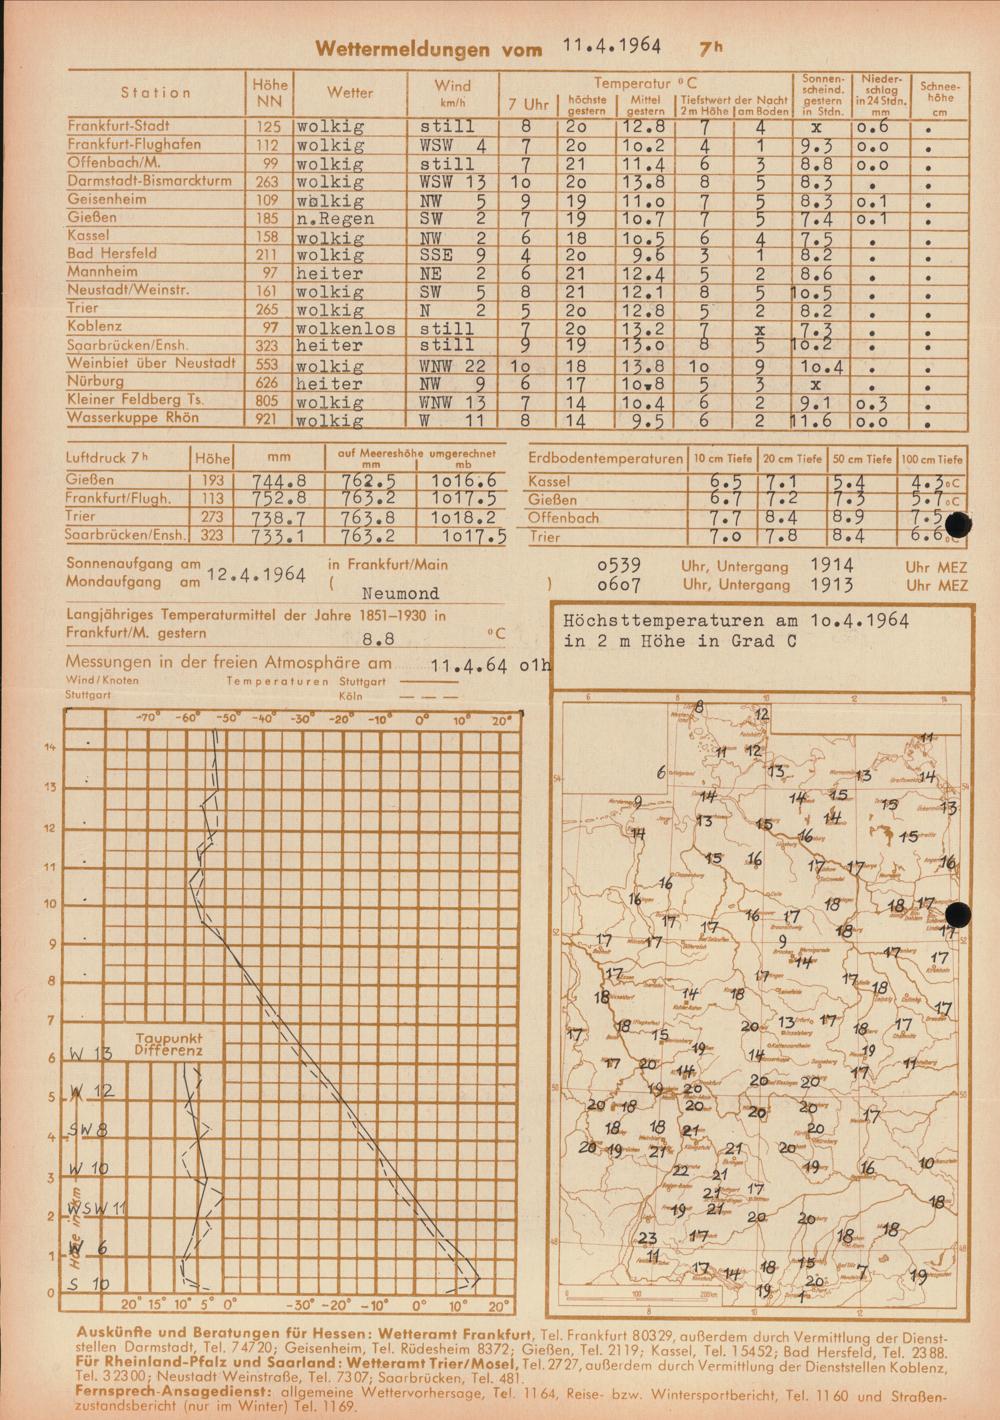 Wettermeldungen vom 11.4.1964 7h
Station Höhe NN Wetter Wind km/h Temperatur °C 7 Uhr höchste gestern Mittel gestern Tiefstwert der Nacht 2 m Höhe am Boden Sonnenscheind. gestern in Stdn. Niederschlag in 24 Stdn. mm Schneehöhe cm
Frankfurt-Stadt 125 wolkig still 8 20 12.8 7 4 x 0.6 .
Frankfurt-Flughafen 112 wolkig WSW 4 7 20 10.2 4 1 9.3 0.0 .
Offenbach/M. 99 wolkig still 7 21 11.4 6 3 8.8 0.0 .
Darmstadt-Bismarckturm 263 wolkig WSW 13 10 20 13.8 8 5 8.3 . .
Geisenheim 109 wolkig NW 5 9 19 11.0 7 5 8.3 0.1 .
Gießen 185 n.Regen SW 2 7 19 10.7 7 5 7.4 0.1 .
Kassel 158 wolkig NW 2 6 18 10.5 6 4 7.5 . .
Bad Hersfeld 211 wolkig SSE 9 4 20 9.6 3 1 8.2 . .
Mannheim 97 heiter NE 2 6 21 12.4 5 2 8.6 . .
Neustadt/Weinstr. 161 wolkig SW 5 8 21 12.1 8 5 10.5 . .
Trier 265 wolkig N 2 5 20 12.8 5 2 8.2 . .
Koblenz 97 wolkenlos still 7 20 13.2 7 x 7.3 . .
Saarbrücken/Ensh. 323 heiter still 9 19 13.0 8 5 10.2 . .
Weinbiet über Neustadt 553 wolkig WNW 22 10 18 13.8 10 9 10.4 . .
Nürburg 626 heiter NW 9 6 17 10.8 5 3 x . .
Kleiner Feldberg Ts. 805 wolkig WNW 13 7 14 10.4 6 2 9.1 0.3 .
Wasserkuppe Rhön 921 wolkig W 11 8 14 9.5 6 2 11.6 0.0 .
Luftdruck 7h Höhe mm auf Meereshöhe umgerechnet mm mb
Gießen 193 744.8 762.5 1016.6
Frankfurt/Flugh. 113 752.8 763.2 1017.5
Trier 273 738.7 763.8 1018.2
Saarbrücken/Ensh. 323 733.1 763.2 1017.5
Erdbodentemperaturen 10 cm Tiefe 20 cm Tiefe 50 cm Tiefe 100 cm Tiefe
Kassel 6.5 7.1 5.4 4.3 °C
Gießen 6.7 7.2 7.3 5.7 °C
Offenbach 7.7 8.4 8.9 7.5
Trier 7.0 7.8 8.4 6.6 °C
Sonnenaufgang am 12.4.1964 in Frankfurt/Main 0539 Uhr, Untergang 1914 Uhr MEZ
Mondaufgang am ( Neumond ) 0607 Uhr, Untergang 1913 Uhr MEZ
Langjähriges Temperaturmittel der Jahre 1851–1930 in
Frankfurt/M. gestern 8.8 °C
Messungen in der freien Atmosphäre am 11.4.64 01h
Wind/Knoten Temperaturen Stuttgart
Stuttgart Köln
Höchsttemperaturen am 10.4.1964
in 2 m Höhe in Grad C
-70° -60° -50° -40° -30° -20° -10° 0° 10° 20°
14
13
12
11
10
9
8
7
Taupunkt
Differenz
6 W 13
5 W 12
4 SW 8
3 W 10
2 WSW 11
1 W 6
0 S 10
Höhe in km
20° 15° 10° 5° 0° -30° -20° -10° 0° 10° 20°
6 8 10 12 14
8 12
11 12 11
6 13 13 14
9 14 14 15 15 13
14 13 15 16 14 15
15 16 17 17 16
16 16 16 17 18 18 17
17 17 17 17 9 14 18 17 17 17
17 18 14 18 17 17 18 17
17 18 15 20 13 17 18 17
19 14 19
17 20 14 19 20 20 20 17 11
20 18 20 20 20 17
18 18 21 20
20 19 21 21 20
22 21 19 16 10
21 17
19 21 20 20 18
23 17 18 18
11 17 14 18 15 7 19
19 20
0 100 200km
8 10 12
Auskünfte und Beratungen für Hessen: Wetteramt Frankfurt, Tel. Frankfurt 80329, außerdem durch Vermittlung der Dienst-
stellen Darmstadt, Tel. 74720; Geisenheim, Tel. Rüdesheim 8372; Gießen, Tel. 2119; Kassel, Tel. 15452; Bad Hersfeld, Tel. 2388.
Für Rheinland-Pfalz und Saarland: Wetteramt Trier/Mosel, Tel. 2727, außerdem durch Vermittlung der Dienststellen Koblenz,
Tel. 32300; Neustadt Weinstraße, Tel. 7307; Saarbrücken, Tel. 481.
Fernsprech-Ansagedienst: allgemeine Wettervorhersage, Tel. 1164, Reise- bzw. Wintersportbericht, Tel. 1160 und Straßen-
zustandsbericht (nur im Winter) Tel. 1169.